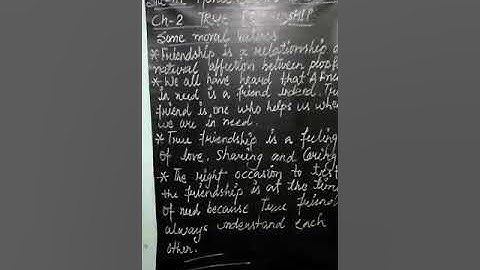 Ch-2 TRUE
Some moral values
* Friendship is a relationship
natural affection between
* We all have heard that A
in need is a friend indeed.
friend is one who helps us
we are in need.
* True friendship is a feeling
of love, Sharing and Caring
* The right occasion to test
the friendship is at the time
of need because True friend
always understand each
other.